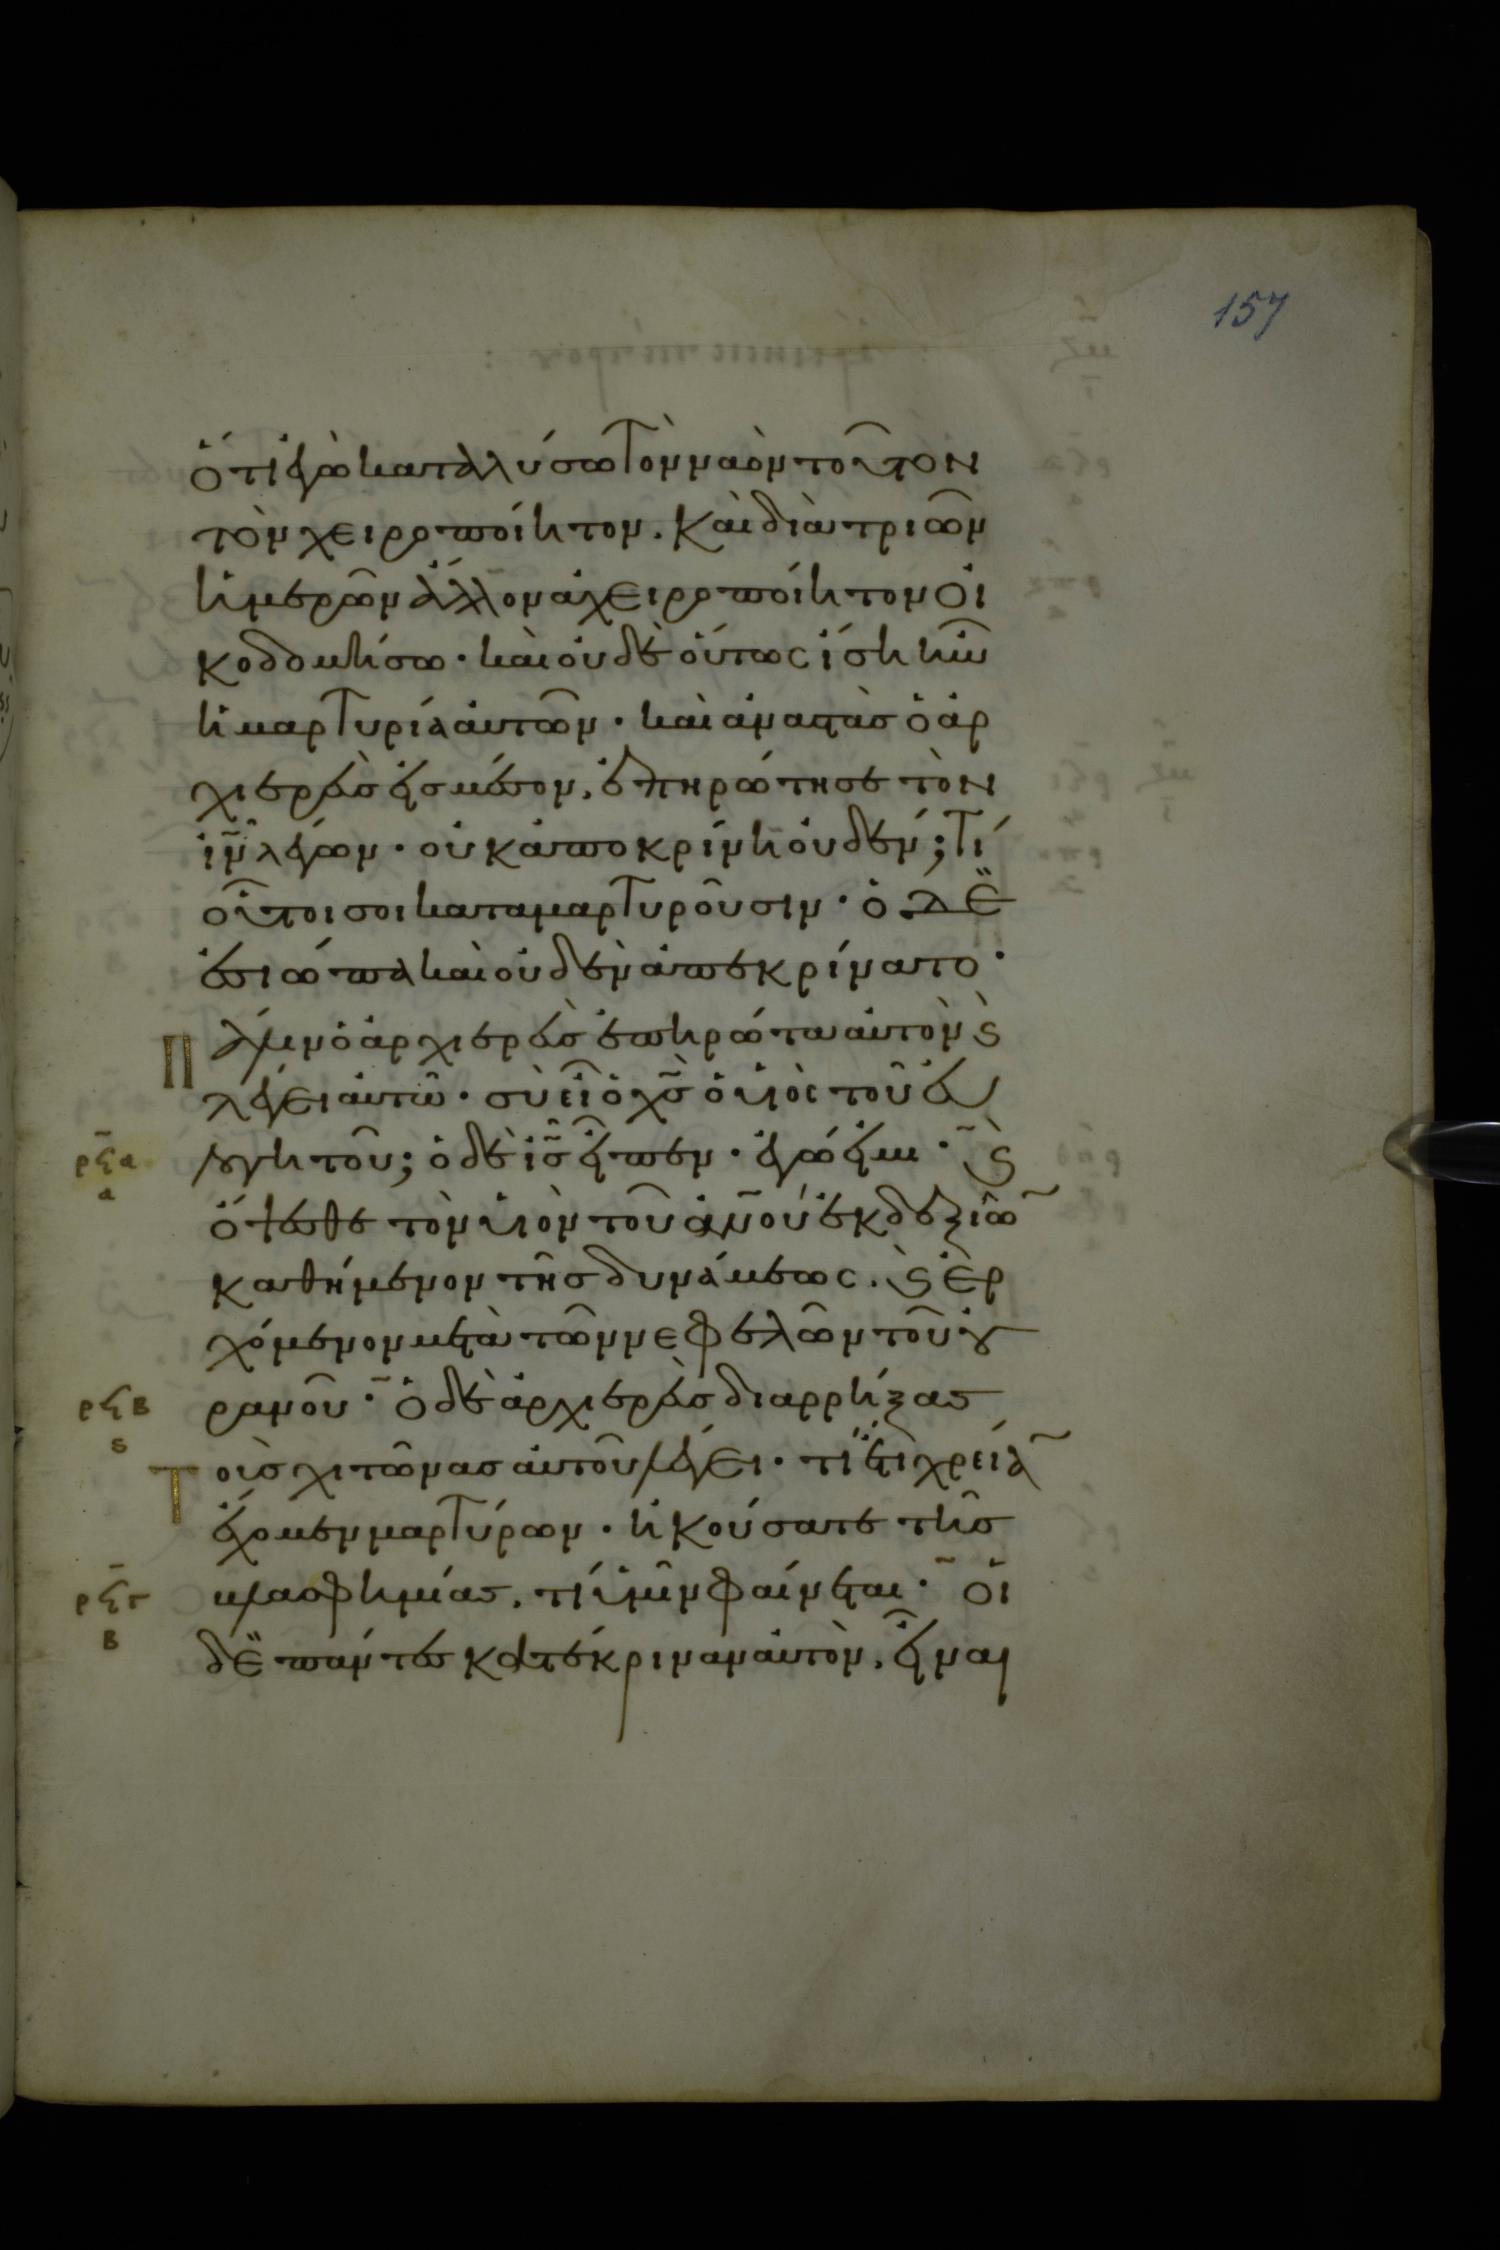 157
ὅτι ἐγὼ καταλύσω τὸν ναὸν τοῦτον
τὸν χειροποίητον. καὶ διὰ τριῶν
ἡμερῶν ἄλλον ἀχειροποίητον οἰ
κοδομήσω· καὶ οὐδὲ οὕτως ἴση ἦν
ἡ μαρτυρία αὐτῶν· καὶ ἀναστὰς ὁ ἀρ
χιερεὺς εἰς μέσον, ἐπηρώτησε τὸν
ἰν̅ λέγων· οὐκ ἀποκρίνη οὐδέν; τί
οὗτοι σοι καταμαρτυροῦσιν· ὁ δὲ
ἐσιώπα καὶ οὐδὲν ἀπεκρίνατο·
Πάλιν ὁ ἀρχιερεὺς ἐπηρώτα αὐτὸν ϗ
λέγει αὐτῶ· σὺ εἶ ὁ χς̅ ὁ υἱὸς τοῦ εὐ
ρϟα α λογητοῦ; ὁ δὲ ις̅ εἶπεν· ἐγώ εἰμι· ϗ
ὄψεσθε τὸν υἱὸν τοῦ ἀν̅ου ἐκ δεξιῶ̅
καθήμενον τῆς δυνάμεως. ϗ ἐρ
χόμενον μετὰ τῶν νεφελῶν τοῦ οὐ
ρϟβ ς ρανοῦ· ὁ δὲ ἀρχιερεὺς διαρρήξας
Τοὺς χιτῶνας αὐτοῦ λέγει· τί ἔτι χρεία̅
ἔχομεν μαρτύρων· ἠκούσατε τῆς
ρϟγ β βλασφημίας. τί ὑμῖν φαίνεται· οἱ
δὲ πάντες κατέκριναν αὐτὸν. εἶναι